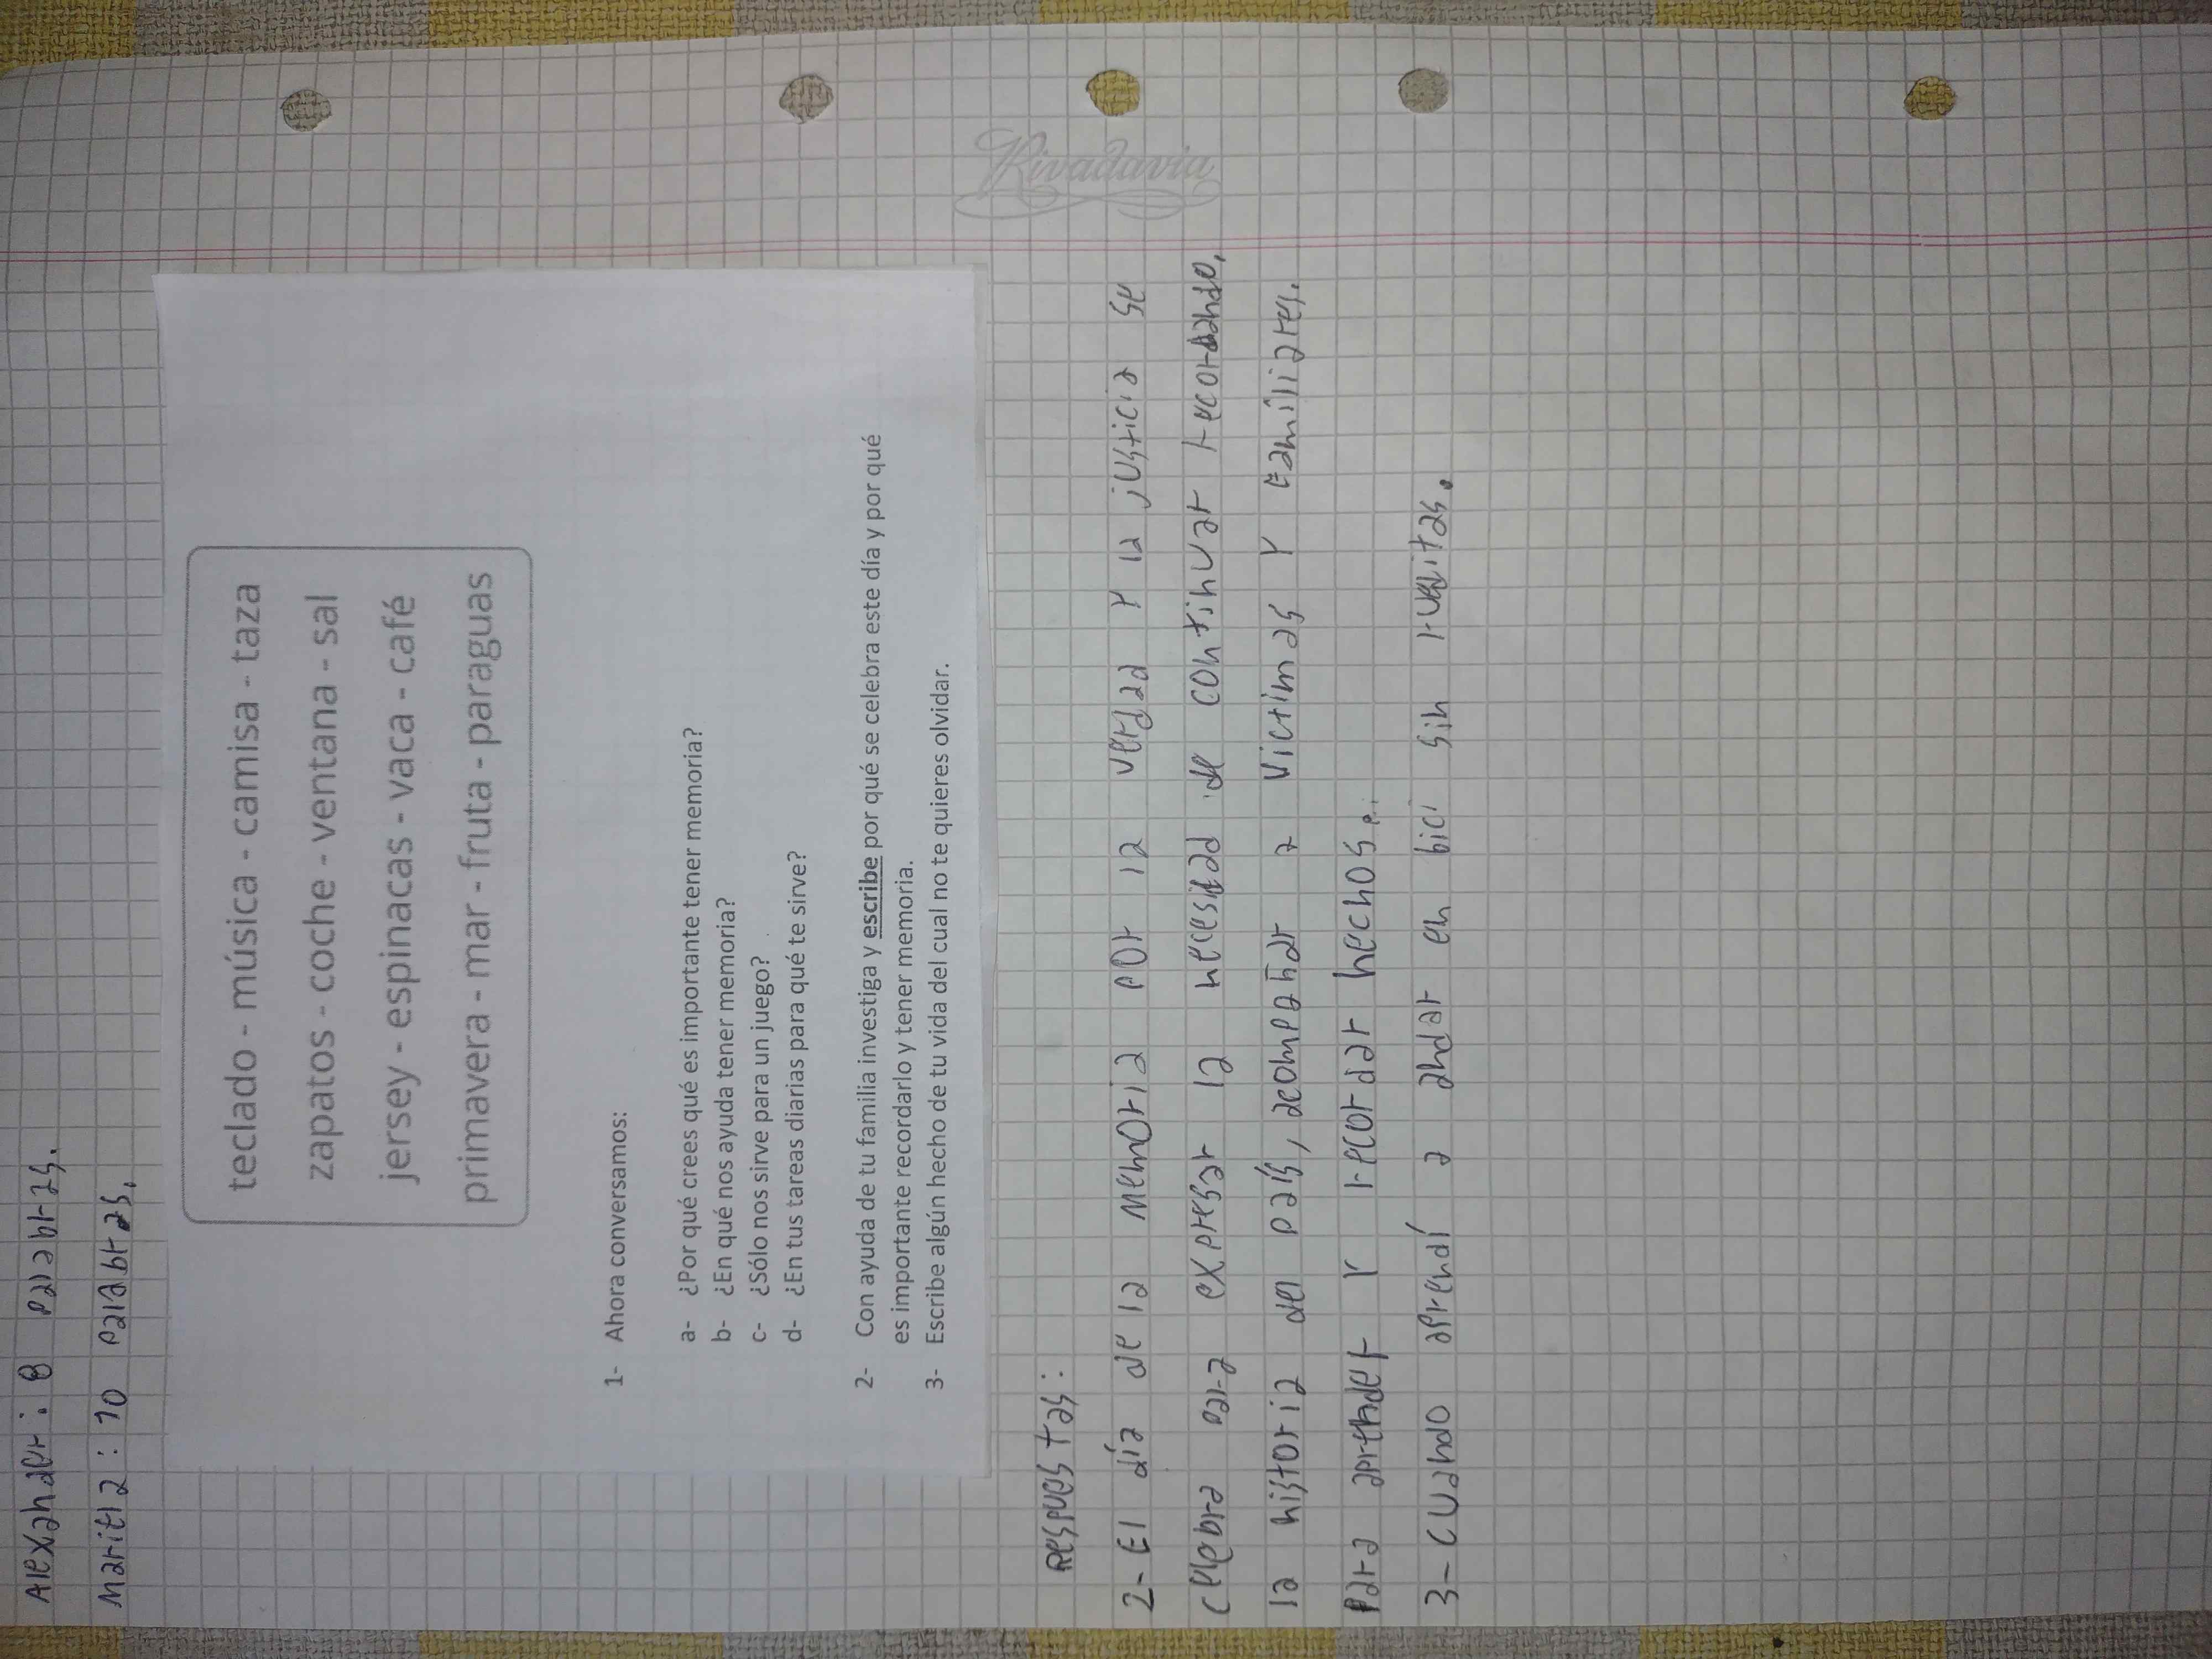 Alexander: 8 palabras.
Mariel2: 10 palabras.
teclado - música - camisa - taza
zapatos - coche - ventana - sal
jersey - espinacas - vaca - café
primavera - mar - fruta - paraguas
1- Ahora conversamos:
a- ¿Por qué crees qué es importante tener memoria?
b- ¿En qué nos ayuda tener memoria?
c- ¿Sólo nos sirve para un juego?
d- ¿En tus tareas diarias para qué te sirve?
2- Con ayuda de tu familia investiga y escribe por qué se celebra este día y por qué
es importante recordarlo y tener memoria.
3- Escribe algún hecho de tu vida del cual no te quieres olvidar.
Rivadavia
Respuestas:
2- El día de la memoria por la verdad y la justicia se
celebra para expresar la necesidad de continuar recordando,
la historia del país, acompañar a victimas y familiares.
Para aprender y recordar hechos.
3- Cuando aprendí a andar en bici sin rueditas.